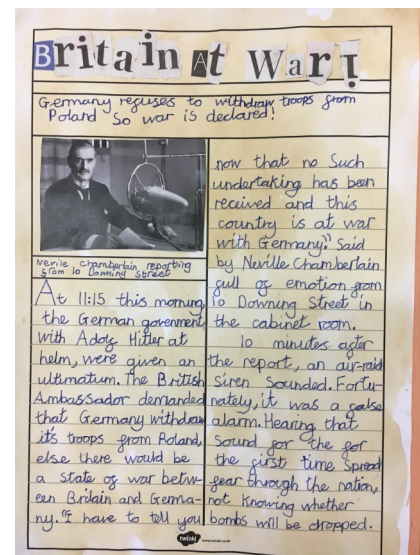 Britain At War!
Germany refuses to withdraw troops from
Poland So war is declared!
Nevile Chamberlain reporting
from 10 Downing Street
At 11:15 this morning,
the German goverment,
with Adolf Hitler at
helm, were given an
ultimatum. The British
Ambassador demanded
that Germany withdraw
it's troops from Poland,
else there would be
a state of war betw-
een Britain and Germa-
ny. "I have to tell you
now that no Such
undertaking has been
received and this
country is at war
with Germany." Said
by Neville Chamberlain
full of emotion from
10 Downing Street in
the cabinet room.
10 minutes after
the report, an air-raid
siren sounded. Fortu-
nately, it was a false
alarm. Hearing that
Sound for the for
the first time spread
fear through the nation,
not knowing whether
bombs will be dropped.
twinkl www.twinkl.co.uk